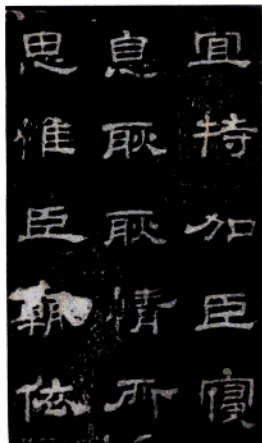 宜特加臣寢
息耿耿情所
思惟臣輒依